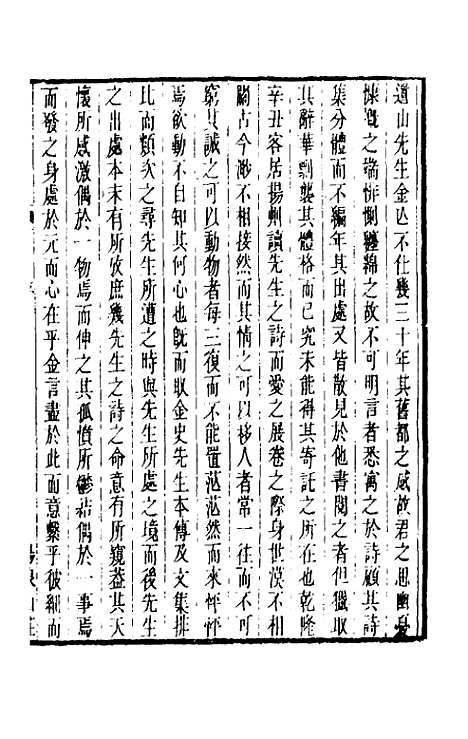 遺山先生金亾不仕幾三十年其舊都之感故君之思幽憂
慷慨之端悱惻纏綿之故不可明言者悉寓之於詩顧其詩
集分體而不編年其出處又皆散見於他書閱之者但獵取
其辭華剽襲其體格而已究未能得其寄託之所在也乾隆
辛丑客居揚州讀先生之詩而愛之展卷之際身世漠不相
關古今渺不相接然而其情之可以移人者常一往而不可
窮其誠之可以動物者每三復而不能置茫茫然而來怦怦
焉欲動不自知其何心也旣而取金史先生本傳及文集排
比而類次之尋先生所遭之時與先生所處之境而後先生
之出處本末有所攷庶幾先生之詩之命意有所窺葢其天
懷所感激偶於一物焉而伸之其孤憤所鬱結偶於一事焉
而發之身處於元而心在乎金言盡於此而意繫乎彼細而